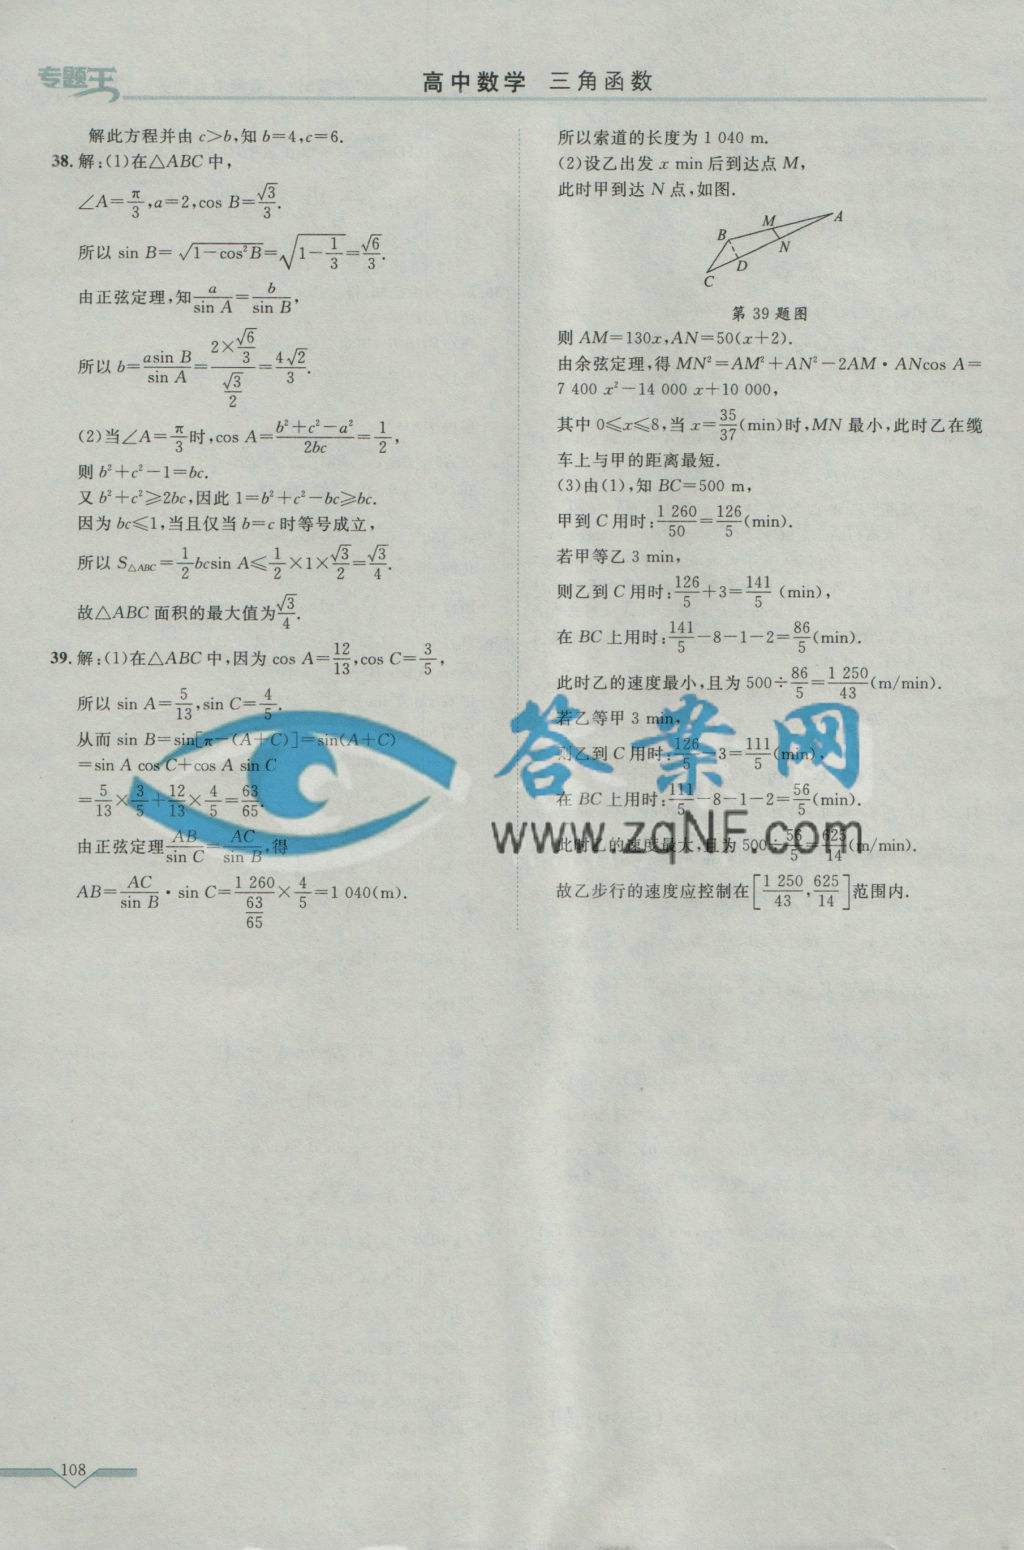 专题王
高中数学 三角函数
解此方程并由 c>b,知 b=4,c=6.
38. 解:(1)在△ABC 中,
∠A=π/3,a=2,cos B=√3/3.
所以 sin B=√(1-cos²B)=√(1-1/3)=√6/3.
由正弦定理,知 a/sin A=b/sin B,
所以 b=asin B/sin A=(2×√6/3)/(√3/2)=4√2/3.
(2)当∠A=π/3时,cos A=(b²+c²-a²)/2bc=1/2,
则 b²+c²-1=bc.
又 b²+c²≥2bc,因此 1=b²+c²-bc≥bc.
因为 bc≤1,当且仅当 b=c 时等号成立,
所以 S△ABC=1/2bcsin A≤1/2×1×√3/2=√3/4.
故△ABC 面积的最大值为√3/4.
39. 解:(1)在△ABC 中,因为 cos A=12/13,cos C=3/5,
所以 sin A=5/13,sin C=4/5.
从而 sin B=sin[π-(A+C)]=sin(A+C)
=sin A cos C+cos A sin C
=5/13×3/5+12/13×4/5=63/65.
由正弦定理AB/sin C=AC/sin B,得
AB=AC/sin B·sin C=1 260/(63/65)×4/5=1 040(m).
所以索道的长度为 1 040 m.
(2)设乙出发 x min 后到达点 M,
此时甲到达 N 点,如图.
A
M
B
N
D
C
第 39 题图
则 AM=130x,AN=50(x+2).
由余弦定理,得 MN²=AM²+AN²-2AM·ANcos A=
7 400 x²-14 000 x+10 000,
其中 0≤x≤8,当 x=35/37(min)时,MN 最小,此时乙在缆
车上与甲的距离最短.
(3)由(1),知 BC=500 m,
甲到 C 用时:1 260/50=126/5(min).
若甲等乙 3 min,
则乙到 C 用时:126/5+3=141/5 (min),
在 BC 上用时:141/5-8-1-2=86/5(min).
此时乙的速度最小,且为 500÷86/5=1 250/43(m/min).
若乙等甲 3 min,
则乙到 C 用时:126/5-3=111/5(min),
在 BC 上用时:111/5-8-1-2=56/5(min).
此时乙的速度最大,且为 500÷56/5=625/14(m/min).
故乙步行的速度应控制在[1 250/43,625/14]范围内.
答案网
www.zqNF.com
108